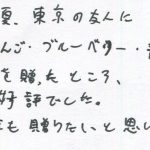 夏、東京の友人に
んご・ブルーベリー・
を贈ったところ、
好評でした。
も贈りたいと思い